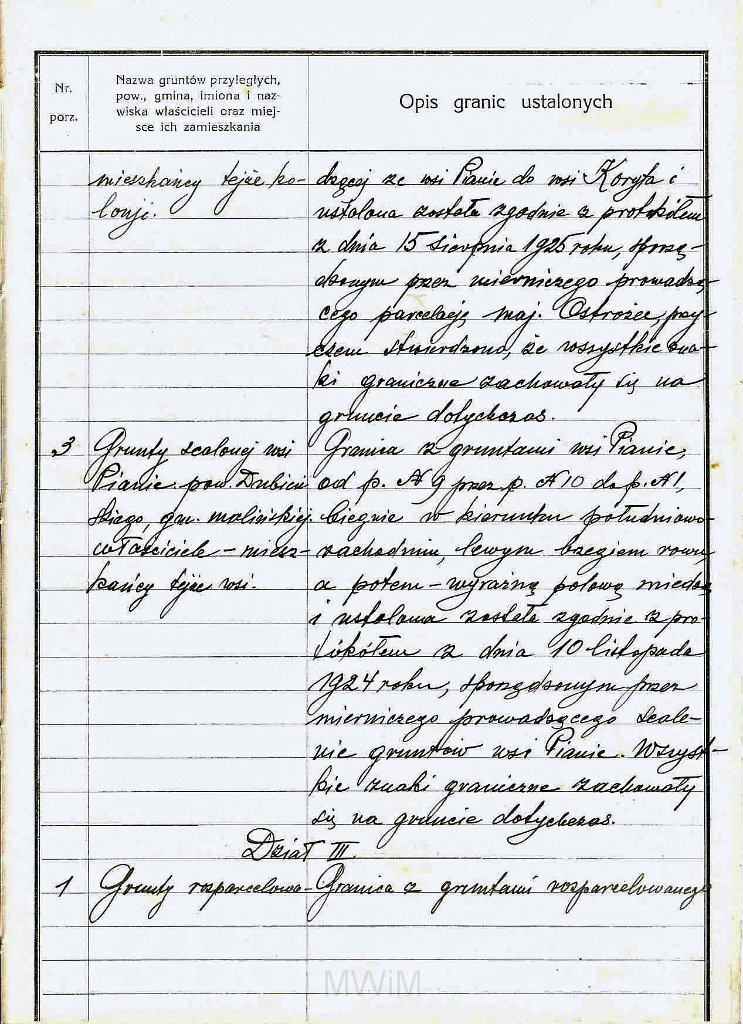 Nr.
porz.
Nazwa gruntów przyległych,
pow., gmina, imiona i naz-
wiska właścicieli oraz miej-
sce ich zamieszkania
Opis granic ustalonych
mieszkańcy tejże ko-
lonji.
dzącej ze wsi Pianie do wsi Koryta i
ustalona została zgodnie z protokółem
z dnia 15 sierpnia 1925 roku, sporzą-
dzonym przez mierniczego prowadzą-
cego parcelację maj. Ostrożec, przy-
czem stwierdzono, że wszystkie zna-
ki graniczne zachowały się na
gruncie dotychczas.
3
Grunty scalonej wsi
Pianie pow. Dubień-
skiego, gm. malińskiej.
właściciele - miesz-
kańcy tejże wsi.
Granica z gruntami wsi Pianie,
od p. N 9 przez p. N 10 do p. N 1,
biegnie w kierunku południowo-
zachodnim, lewym brzegiem rowu,
a potem - wyraźną polową miedzą
i ustalona została zgodnie z pro-
tokółem z dnia 10 listopada
1924 roku, sporządzonym przez
mierniczego prowadzącego scale-
nie gruntów wsi Pianie. Wszyst-
kie znaki graniczne zachowały
się na gruncie dotychczas.
Dział III.
1
Grunty rozparcelowa-
Granica z gruntami rozparcelowanego
MWiM